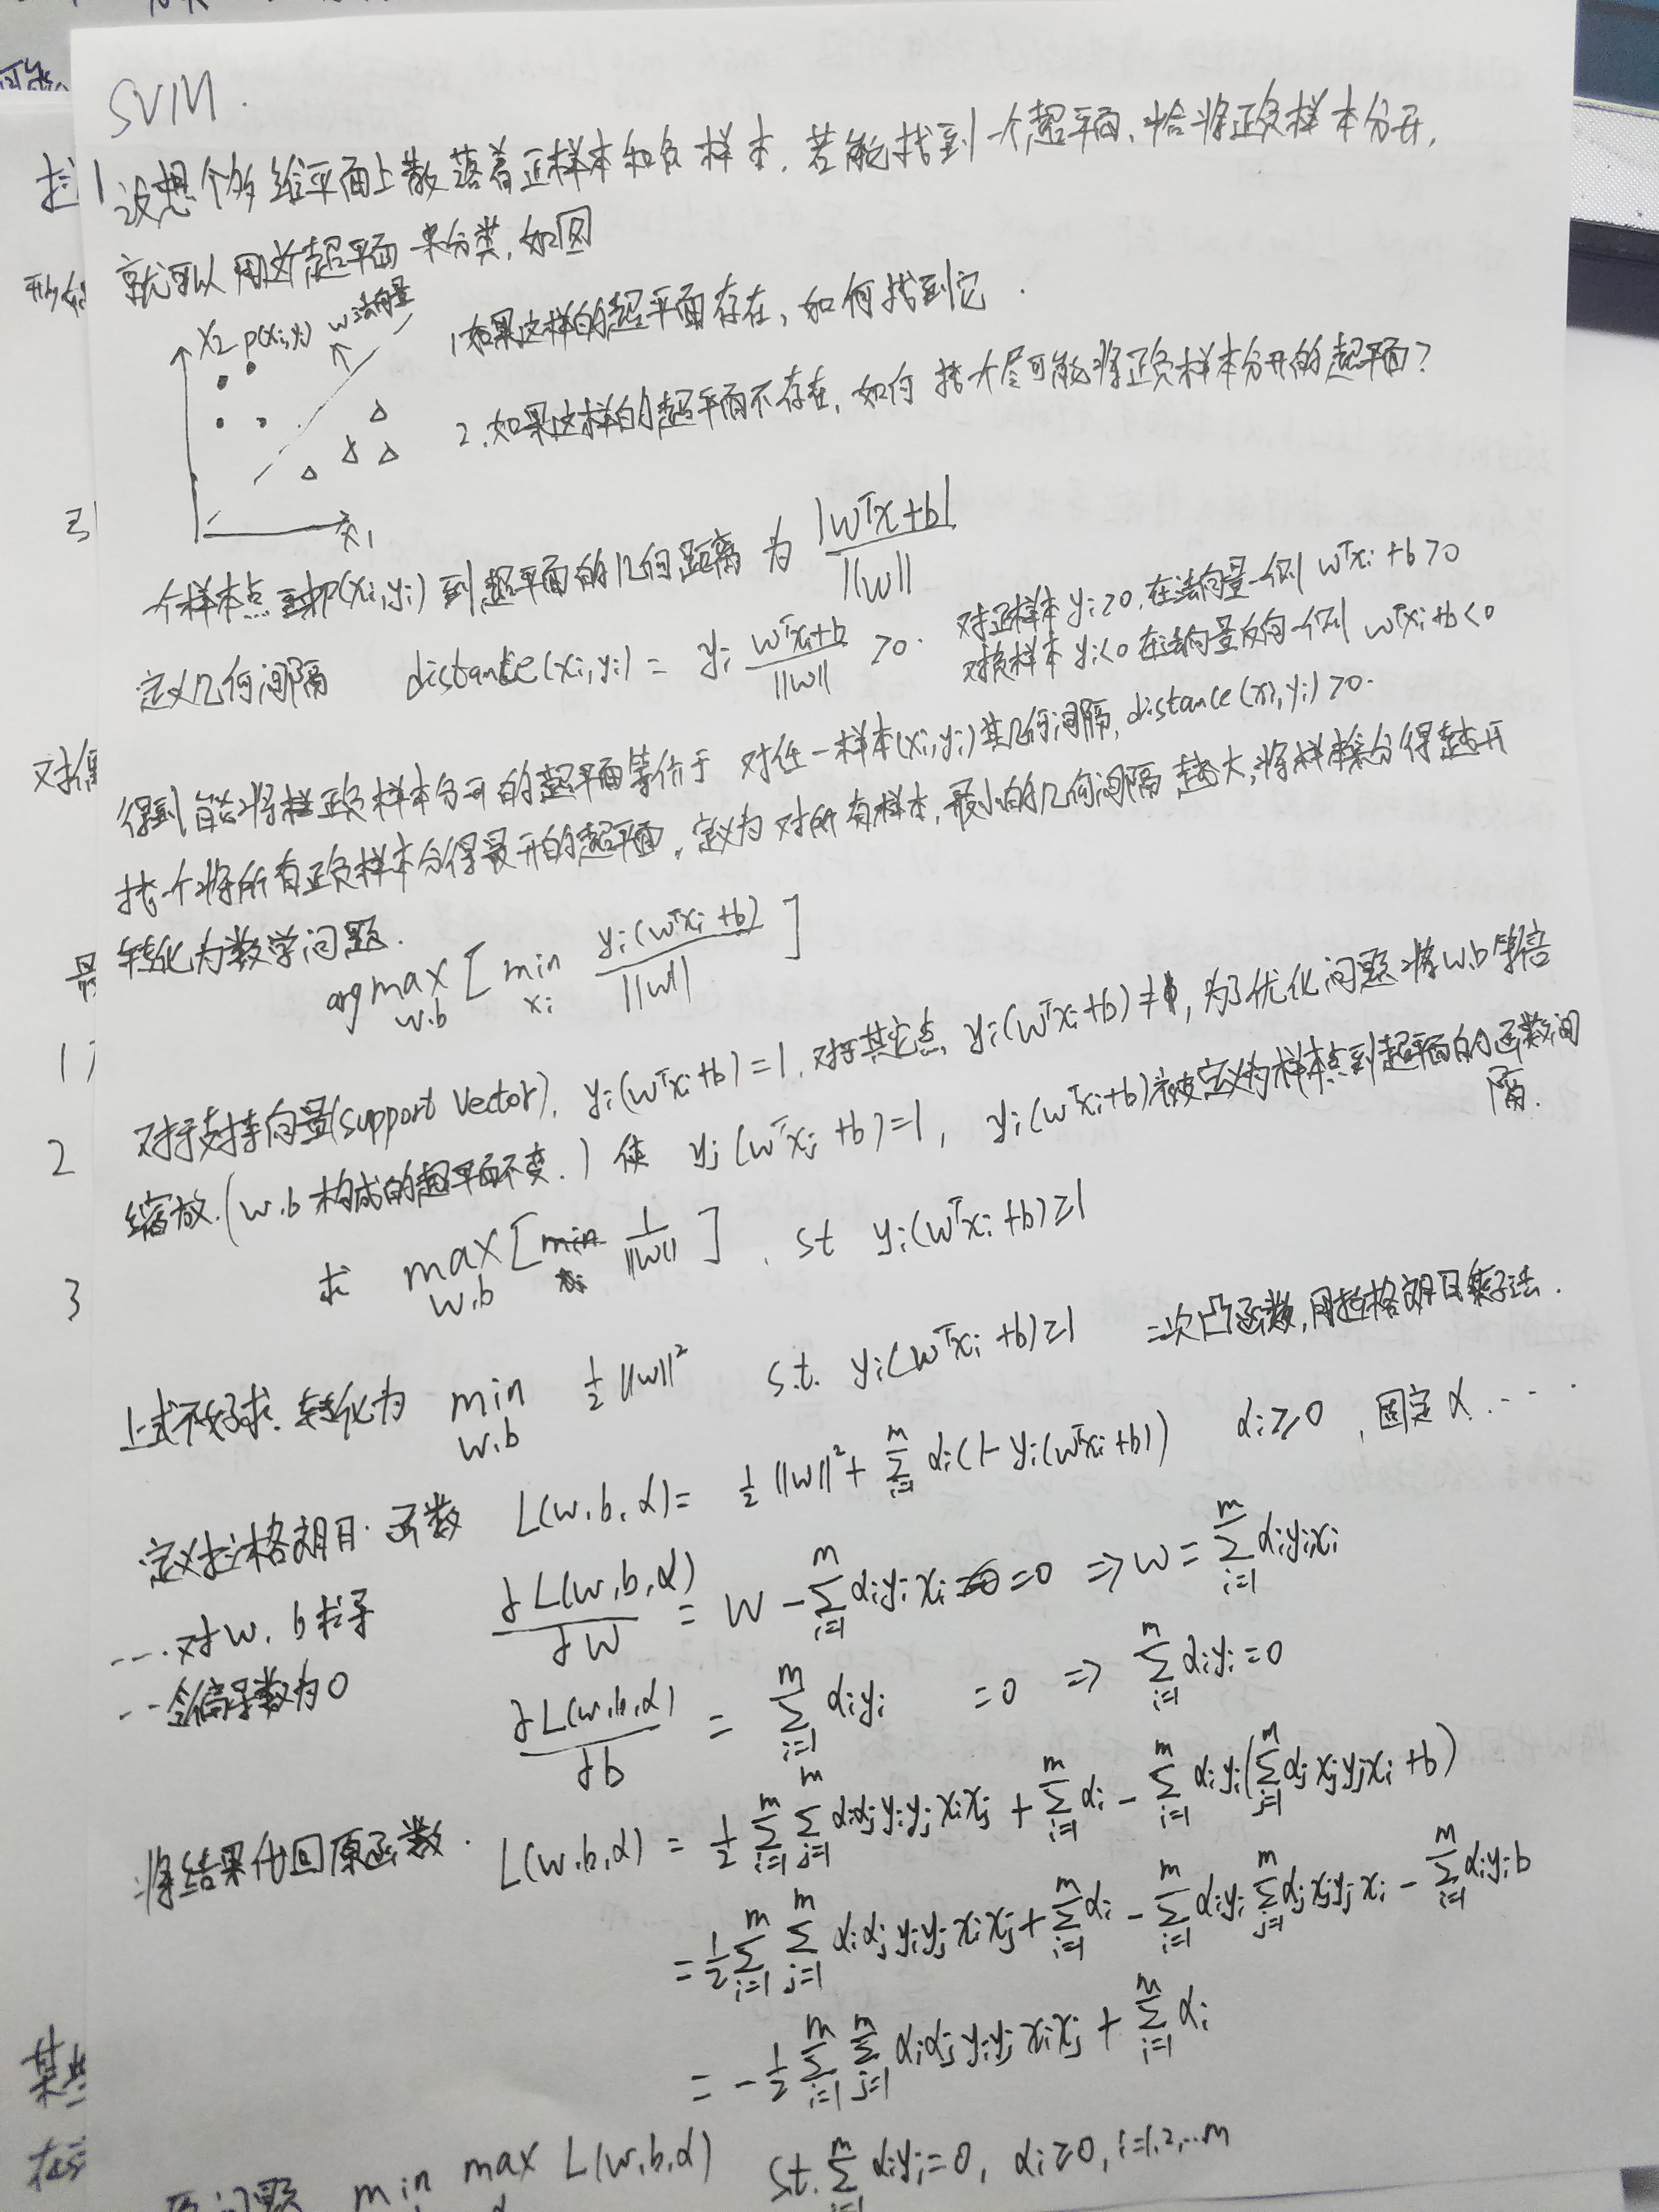 SVM.
设想个多维平面上散落着正样本和负样本. 若能找到一个超平面, 恰将正负样本分开,
就可以用这超平面来分类, 如图
X2 p(xi,yi) w法向量
X1
1.如果这样的超平面存在, 如何找到它.
2.如果这样的超平面不存在, 如何找个尽可能将正负样本分开的超平面?
个样本点 p(xi,yi) 到超平面的几何距离为 |wᵀx+b| / ||w||
定义几何间隔 distance(xi,yi) = yi (wᵀxi+b)/||w|| >0. 对正样本 yi>0, 在法向量一侧 wᵀxi+b>0
对负样本 yi<0 在法向量反向一侧 wᵀxi+b<0
得到能将正负样本分开的超平面等价于 对任一样本(xi,yi)其几何间隔, distance(xi,yi)>0.
找个将所有正负样本分得最开的超平面, 定义为对所有样本, 最小的几何间隔越大, 将样本分得越开
转化为数学问题.
arg max w.b [ min xi yi(wᵀxi+b)/||w|| ]
对于支持向量(support vector), yi(wᵀxi+b)=1, 对于其它点, yi(wᵀxi+b)≠1, 为了优化问题将w.b等倍
缩放.(w.b构成的超平面不变.) 使 yj(wᵀxj+b)=1, yi(wᵀxi+b)被定义为样本点到超平面的函数间
隔.
求 max w.b [ min xi 1/||w|| ], st yi(wᵀxi+b)≥1
上式不好求. 转化为 min w.b ½||w||² s.t. yi(wᵀxi+b)≥1 二次凸函数, 用拉格朗日乘子法.
定义拉格朗日函数 L(w,b,α)= ½||w||²+ Σ_{i=1}^m αi(1-yi(wᵀxi+b)) αi≥0, 固定α....
....对w, b求导 ∂L(w,b,α)/∂w = w - Σ_{i=1}^m αiyixi =0 ⇒ w = Σ_{i=1}^m αiyixi
...令偏导数为0 ∂L(w,b,α)/∂b = Σ_{i=1}^m αiyi =0 ⇒ Σ_{i=1}^m αiyi=0
将结果代回原函数. L(w,b,α) = ½ Σ_{i=1}^m Σ_{j=1}^m αiαjyiyjxixj + Σ_{i=1}^m αi - Σ_{i=1}^m αiyi(Σ_{j=1}^m αjxjyjxi+b)
= ½ Σ_{i=1}^m Σ_{j=1}^m αiαjyiyjxixj + Σ_{i=1}^m αi - Σ_{i=1}^m αiyi Σ_{j=1}^m αjxjyjxi - Σ_{i=1}^m αiyib
= -½ Σ_{i=1}^m Σ_{j=1}^m αiαjyiyjxixj + Σ_{i=1}^m αi
原问题 min max L(w,b,α) st. Σ_{i=1}^m αiyi=0, αi≥0, i=1,2,...m
1)
2
3
某些